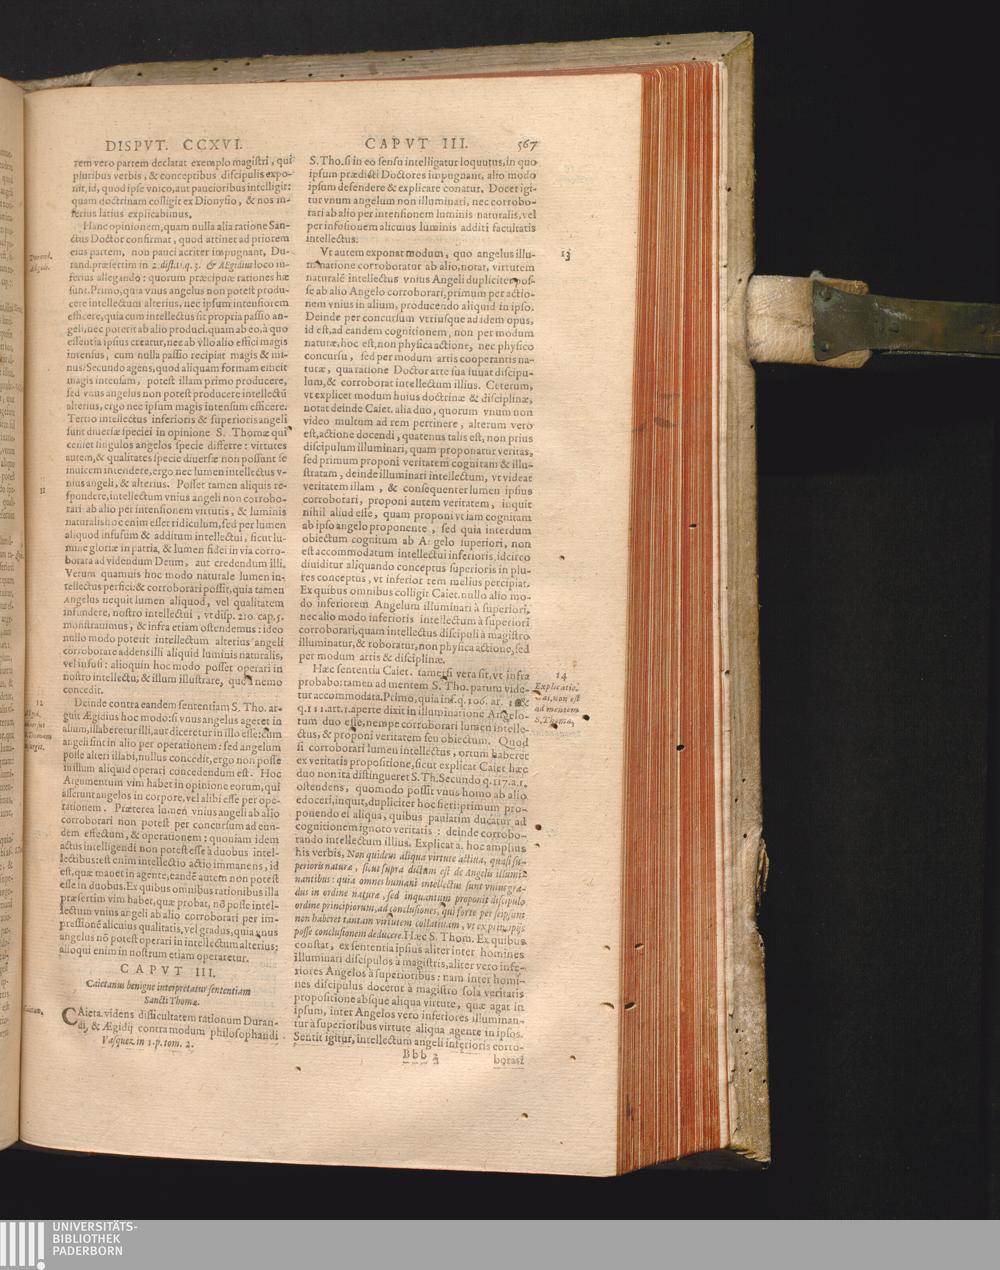 DISPVT. CCXVI.
rem vero partem declarat exemplo magistri, qui
pluribus verbis, & conceptibus discipulis expo-
nit, id, quod ipse vnico, aut paucioribus intelligit:
quam doctrinam colligit ex Dionysio, & nos in-
ferius latius explicabimus.
Hanc opinionem, quam nulla alia ratione San-
ctus Doctor confirmat, quod attinet ad priorem
eius partem, non pauci acriter impugnant, Du-
rand. præsertim in 2. dist. 11. q. 3. & AEgidius loco in-
ferius allegando: quorum præcipuæ rationes hæ
sunt. Primo, quia vnus angelus non potest produ-
cere intellectum alterius, nec ipsum intensiorem
efficere, quia cum intellectus sit propria passio an-
geli, nec poterit ab alio produci, quam ab eo, à quo
essentia ipsius creatur, nec ab vllo alio effici magis
intensus, cum nulla passio recipiat magis & mi-
nus. Secundo agens, quod aliquam formam efficit
magis intensam, potest illam primo producere,
sed vnus angelus non potest producere intellectū
alterius, ergo nec ipsum magis intensum efficere.
Tertio intellectus inferioris & superioris angeli
sunt diuersæ speciei in opinione S. Thomæ qui
censet singulos angelos specie differre: virtutes
autem, & qualitates specie diuersæ non possunt se
inuicem intendere, ergo nec lumen intellectus v-
nius angeli, & alterius. Posset tamen aliquis re-
11
spondere, intellectum vnius angeli non corrobo-
rari ab alio per intensionem virtutis, & luminis
naturalis hoc enim esset ridiculum, sed per lumen
aliquod infusum & additum intellectui, sicut lu-
mine gloriæ in patria, & lumen fidei in via corro-
borata ad videndum Deum, aut credendum illi.
Verum quamuis hoc modo naturale lumen in-
tellectus perfici: & corroborari possit, quia tamen
Angelus nequit lumen aliquod, vel qualitatem
infundere, nostro intellectui, vt disp. 210. cap. 5.
monstrauimus, & infra etiam ostendemus: ideo
nullo modo poterit intellectum alterius angeli
corroborate addens illi aliquid luminis naturalis,
vel infusi: alioquin hoc modo posset operari in
nostro intellectu, & illum illustrare, quod nemo
concedit.
12
Deinde contra eandem sententiam S. Tho. ar-
guit Ægidius hoc modo: si vnus angelus ageret in
alium, illaberetur illi, aut diceretur in illo esse: cum
angeli sint in alio per operationem: sed angelum
posse alteri illabi, nullus concedit, ergo non posse
in illum aliquid operari concedendum est. Hoc
Argumentum vim habet in opinione eorum, qui
asserunt angelos in corpore, vel alibi esse per ope-
rationem. Præterea lumen vnius angeli ab alio
corroborari non potest per concursum ad eun-
dem effectum, & operationem: quoniam idem
actus intelligendi non potest esse à duobus intel-
lectibus: est enim intellectio actio immanens, id
est, quæ manet in agente, eandē autem non potest
esse in duobus. Ex quibus omnibus rationibus illa
præsertim vim habet, quæ probat, nō posse intel-
lectum vnius angeli ab alio corroborari per im-
pressionē alicuius qualitatis, vel gradus, quia vnus
angelus nō potest operari in intellectum alterius;
alioqui enim in nostrum etiam operaretur.
CAPVT III.
Caietanus benigne interpretatur sententiam
Sancti Thomæ.
CAieta. videns difficultatem rationum Duran-
di, & Ægidij contra modum philosophandi
Vasquez. in 1. p. tom. 2.
CAPVT III. 567
S. Tho. si in eo sensu intelligatur loquutus, in quo
ipsum prædicti Doctores impugnant, alio modo
ipsum defendere & explicare conatur. Docet igi-
tur vnum angelum non illuminari, nec corrobo-
rari ab alio per intensionem luminis naturalis, vel
per infusionem alicuius luminis additi facultatis
intellectus.
13
Vt autem exponat modum, quo angelus illu-
minatione corroboratur ab alio, notat, virtutem
naturalē intellectus vnius Angeli dupliciter pos-
se ab alio Angelo corroborari, primum per actio-
nem vnius in alium, producendo aliquid in ipso.
Deinde per concursum vtriusque ad idem opus,
id est, ad eandem cognitionem, non per modum
naturæ, hoc est, non physica actione, nec physico
concursu, sed per modum artis cooperantis na-
turæ, qua ratione Doctor arte sua iuuat discipu-
lum, & corroborat intellectum illius. Ceterum,
vt explicet modum huius doctrinæ & disciplinæ,
notat deinde Caiet. alia duo, quorum vnum non
video multum ad rem pertinere, alterum vero
est, actione docendi, quatenus talis est, non prius
discipulum illuminari, quam proponatur veritas,
sed primum proponi veritatem cognitam & illu-
stratam, deinde illuminari intellectum, vt videat
veritatem illam, & consequenter lumen ipsius
corroborari, proponi autem veritatem, inquit
nihil aliud esse, quam proponi vt iam cognitam
ab ipso angelo proponente, sed quia interdum
obiectum cognitum ab Angelo superiori, non
est accommodatum intellectui inferioris, idcirco
diuiditur aliquando conceptus superioris in plu-
res conceptus, vt inferior rem melius percipiat.
Ex quibus omnibus colligit Caiet. nullo alio mo-
do inferiorem Angelum illuminari à superiori,
nec alio modo inferioris intellectum à superiori
corroborari, quam intellectus discipuli à magistro
illuminatur, & roboratur, non physica actione, sed
per modum artis & disciplinæ.
14
Explicatio
Cai. non est
ad mentem
S. Thomæ.
Hæc sententia Caiet. tametsi vera sit, vt infra
probabo: tamen ad mentem S. Tho. parum vide-
tur accommodata. Primo, quia inf. q. 106. ar. 1. &
q. 111. art. 1. aperte dixit in illuminatione Angelo-
rum duo esse, nempe corroborari lumen intelle-
ctus, & proponi veritatem seu obiectum. Quod
si corroborari lumen intellectus, ortum haberet
ex veritatis propositione, sicut explicat Caiet hæc
duo non ita distingueret S. Th. Secundo q. 117. a. 1.
ostendens, quomodo possit vnus homo ab alio
edoceri, inquit, dupliciter hoc fieri: primum pro-
ponendo ei aliqua, quibus paulatim ducatur ad
cognitionem ignoto veritatis: deinde corrobo-
rando intellectum illius. Explicat a. hoc amplius
his verbis, Non quidem aliqua virtute actiua, quasi su-
perioris naturæ, sicut supra dictum est de Angelis illumi-
nantibus: quia omnes humani intellectus sunt vnius gra-
dus in ordine naturæ, sed inquantum proponit discipulo
ordine principiorum, ad conclusiones, qui forte per seipsum
non haberet tantam virtutem collatiuam, vt ex principijs
posse conclusionem deducere. Hæc S. Thom. Ex quibus
constat, ex sententia ipsius aliter inter homines
illuminari discipulos à magistris, aliter vero infe-
riores Angelos à superioribus: nam inter homi-
nes discipulus docetur à magistro sola veritatis
propositione absque aliqua virtute, quæ agat in
ipsum, inter Angelos vero inferiores illuminan-
tur à superioribus virtute aliqua agente in ipsos.
Sentit igitur, intellectum angeli inferioris corro-
Bbb 3 borari
UNIVERSITÄTS-
BIBLIOTHEK
PADERBORN